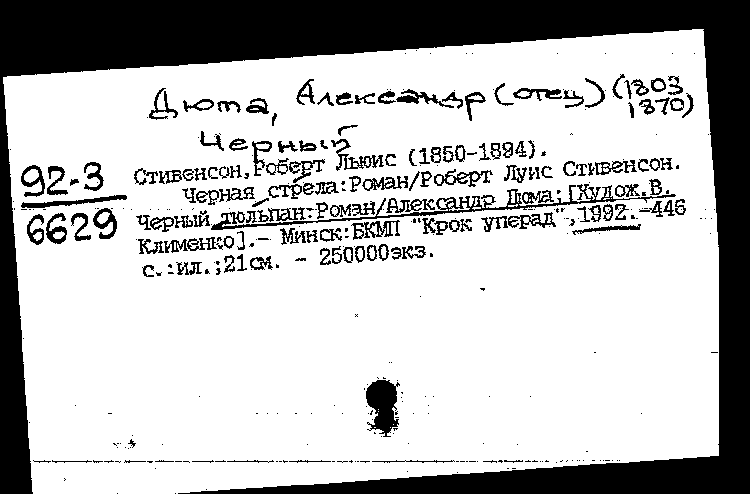 Дюма, Александр (отец) (1803
1870)
Черный
92-3
6629
Стивенсон, Роберт Льюис (1850-1894).
Черная стрела:Роман/Роберт Луис Стивенсон.
Черный тюльпан:Роман/Александр Дюма;[Худож.В.
Клименко].- Минск:БКМП "Крок уперад",1992.-446
с.:ил.;21см. - 250000экз.